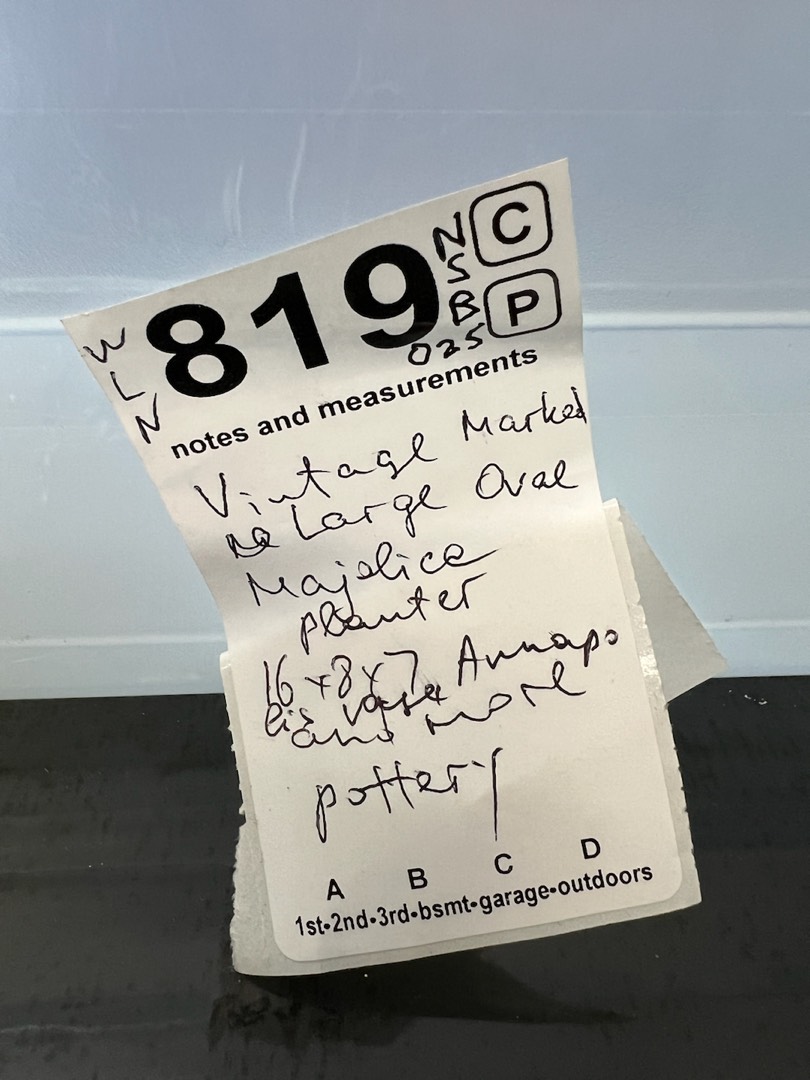 WLN 819 NSB C
025 P
notes and measurements
Vintage Marked
Large Oval
Majolica
planter
16 x 8 x 7 Annapo
lis vase
and more
pottery
A B C D
1st•2nd•3rd•bsmt•garage•outdoors